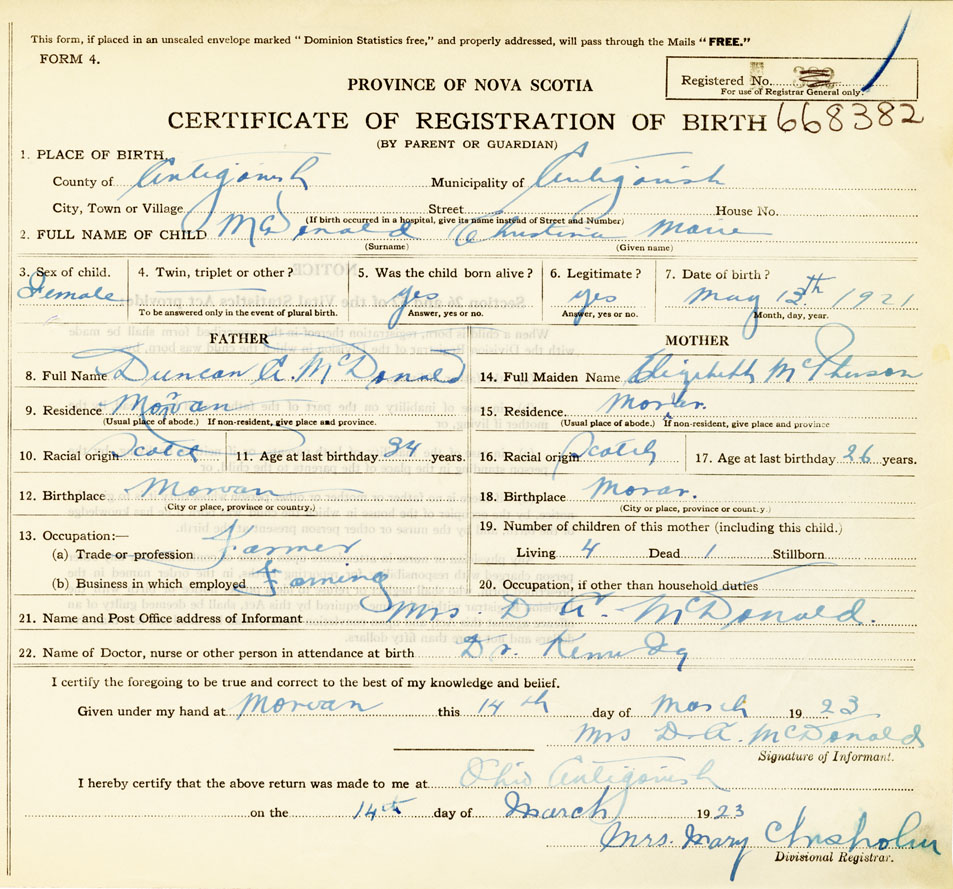 This form, if placed in an unsealed envelope marked "Dominion Statistics free," and properly addressed, will pass through the Mails "FREE."
FORM 4.
Registered No.
For use of Registrar General only.
PROVINCE OF NOVA SCOTIA
CERTIFICATE OF REGISTRATION OF BIRTH 668382
(BY PARENT OR GUARDIAN)
1. PLACE OF BIRTH,
County of Antigonish Municipality of Antigonish
City, Town or Village Street House No.
(If birth occurred in a hospital, give its name instead of Street and Number)
2. FULL NAME OF CHILD McDonald Christina Marie
(Surname) (Given name)
3. Sex of child. 4. Twin, triplet or other? 5. Was the child born alive? 6. Legitimate? 7. Date of birth?
Female yes yes May 13th 1921
To be answered only in the event of plural birth. Answer, yes or no. Answer, yes or no. Month, day, year.
FATHER MOTHER
8. Full Name Duncan A. McDonald 14. Full Maiden Name Elizabeth McPherson
9. Residence Morvan 15. Residence Morvan.
(Usual place of abode.) If non-resident, give place and province. (Usual place of abode.) If non-resident, give place and province
10. Racial origin Scotch 11. Age at last birthday 34 years. 16. Racial origin Scotch 17. Age at last birthday 26 years.
12. Birthplace Morvan 18. Birthplace Morvan.
(City or place, province or country.) (City or place, province or country.)
13. Occupation:— 19. Number of children of this mother (including this child.)
(a) Trade or profession Farmer Living 4 Dead 1 Stillborn
(b) Business in which employed Farming 20. Occupation, if other than household duties
21. Name and Post Office address of Informant Mrs D. A. McDonald.
22. Name of Doctor, nurse or other person in attendance at birth Dr. Kennedy
I certify the foregoing to be true and correct to the best of my knowledge and belief.
Given under my hand at Morvan this 14th day of March 1923
Mrs D. A. McDonald
Signature of Informant.
I hereby certify that the above return was made to me at Ohio Antigonish
on the 14th day of March 1923
Mrs. Mary Chisholm
Divisional Registrar.